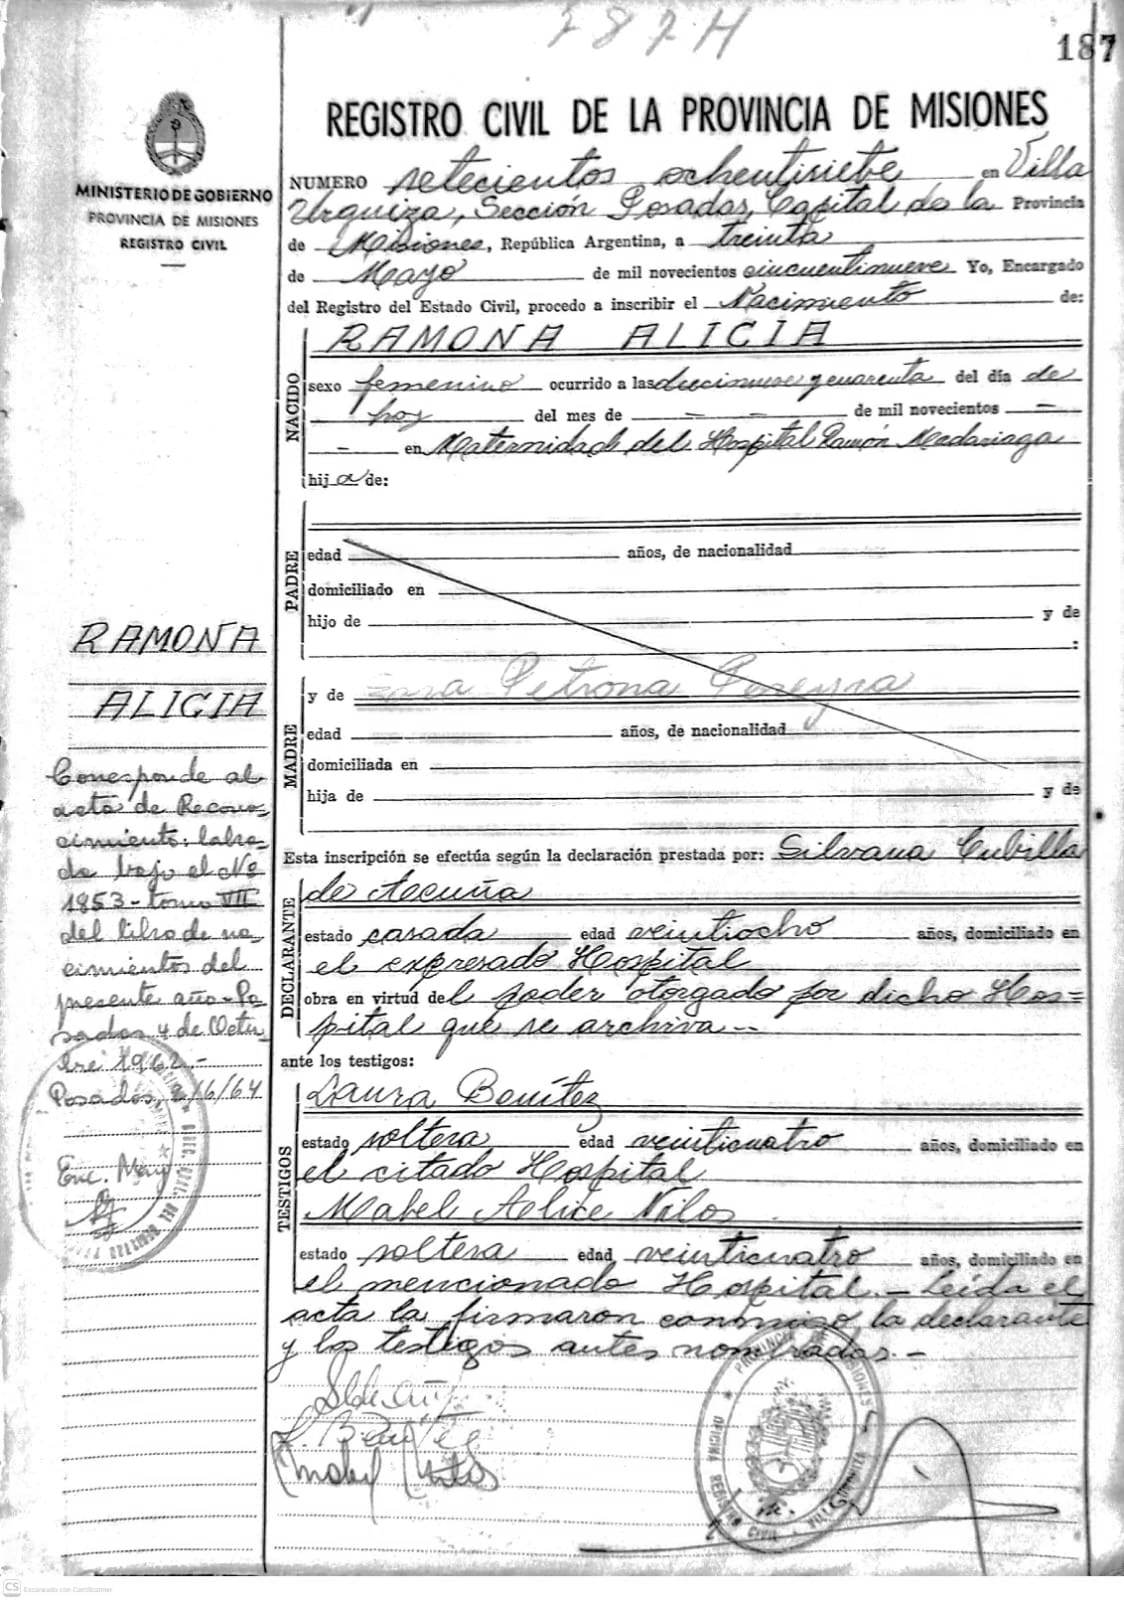 787 H
187
REGISTRO CIVIL DE LA PROVINCIA DE MISIONES
MINISTERIO DE GOBIERNO
PROVINCIA DE MISIONES
REGISTRO CIVIL
NUMERO setecientos ochentisiete en Villa
Urquiza, Sección Posadas, Capital de la Provincia
de Misiones, República Argentina, a treinta
de Mayo de mil novecientos cincuentinueve Yo, Encargado
del Registro del Estado Civil, procedo a inscribir el Nacimiento de:
NACIDO
RAMONA ALICIA
sexo femenino ocurrido a las diecinueve y cuarenta del día de
hoy del mes de - - de mil novecientos -
- en Maternidad del Hospital Ramón Madariaga
hija de:
PADRE
edad años, de nacionalidad
domiciliado en
hijo de y de
:
MADRE
y de Petrona Pereyra
edad años, de nacionalidad
domiciliada en
hija de y de
RAMONA
ALICIA
Corresponde al
acta de Recono-
cimiento: labra-
da bajo el Nº
1853 - tomo VII
del libro de na-
cimientos del
presente año - Po-
sadas 4 de Octu-
bre 1962.-
Posadas, 2/6/64
Enc. May
Esta inscripción se efectúa según la declaración prestada por: Silvana Cubilla
DECLARANTE
de Acuña
estado casada edad veintiocho años, domiciliado en
el expresado Hospital
obra en virtud del poder otorgado por dicho Hos=
pital que se archiva.-
ante los testigos:
TESTIGOS
Laura Benítez
estado soltera edad veinticuatro años, domiciliado en
el citado Hospital
Mabel Nilos
estado soltera edad veinticuatro años, domiciliado en
el mencionado Hospital.- Leída el
acta la firmaron conmigo, la declarante
y los testigos antes nombradas.-
L. Benítez
PROVINCIA DE MISIONES
REGISTRO CIVIL
VILLA URQUIZA
CS Escaneado con CamScanner